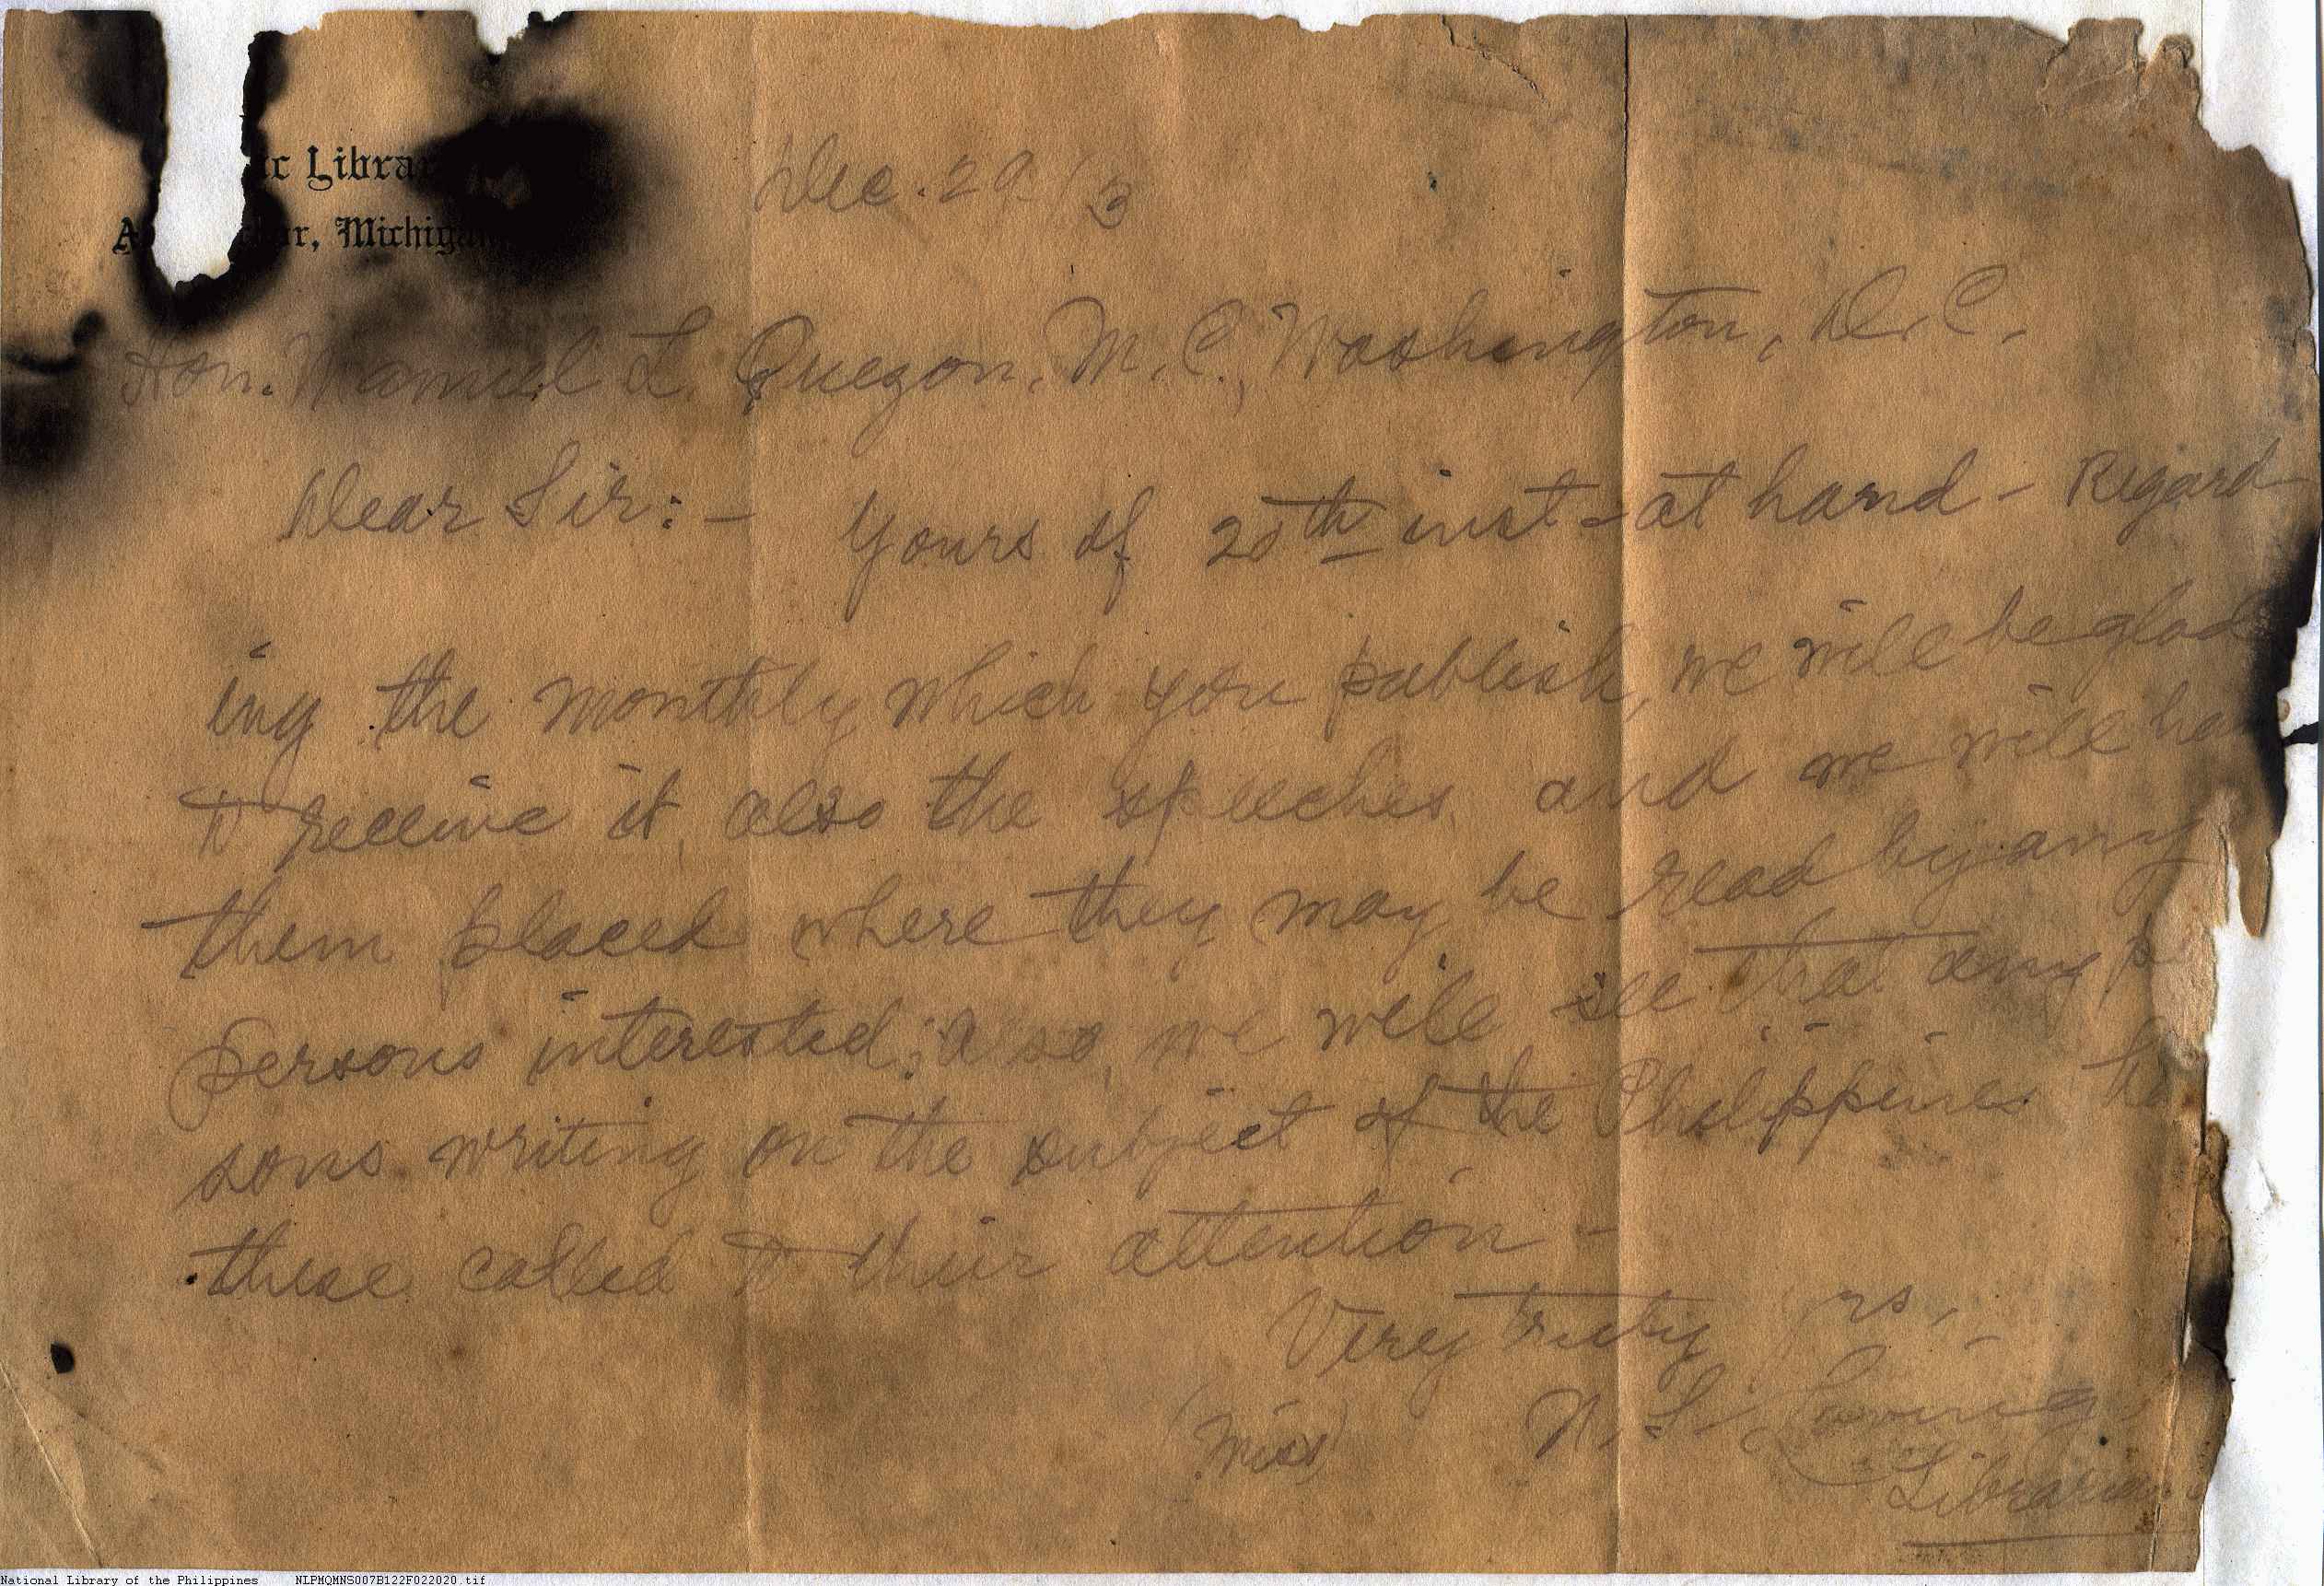 ic Librar
A r, Michigan
Dec. 29 13
Hon. Manuel L. Quezon, M. C., Washington, D. C.
Dear Sir:- Yours of 20th inst - at hand - Regard-
ing the monthly which you publish, we will be glad
to receive it, also the speeches, and we will ha
them placed where they may be read by any
persons interested; also, we will see that any pe
sons writing on the subject of the Philippines ha
these called to their attention -
Very truly rs,
(Miss) N. S. Loving,
Librarian.
National Library of the Philippines NLPMQMNS007B122F022020.tif